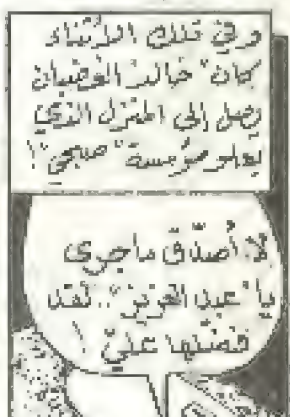 وفي تلك الأثناء
كان "خالد" الغضبان
يصل إلى المنزل الذي
يعلو مؤسسة "صبحي"!
لا أصدّق ما جرى
يا "عبد العزيز".. لقد
فضّلها عليّ!